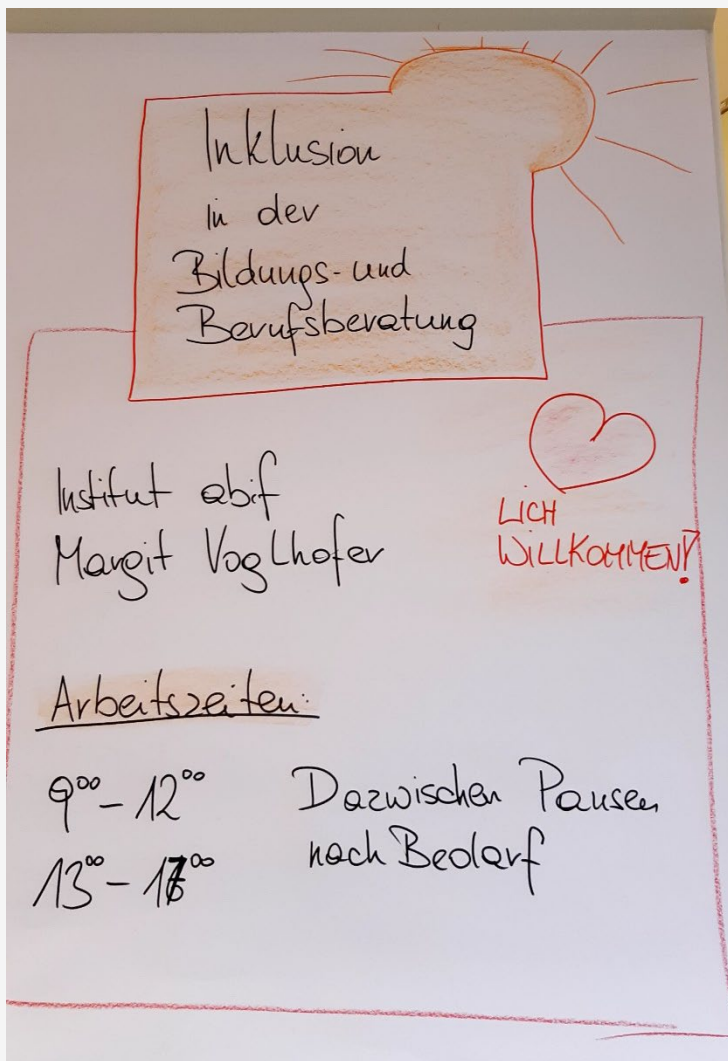 Inklusion
in der
Bildungs- und
Berufsberatung
Institut abif
Margit Voglhofer
LICH
WILLKOMMEN!
Arbeitszeiten:
9⁰⁰ – 12⁰⁰
Dazwischen Pausen
nach Bedarf
13⁰⁰ –